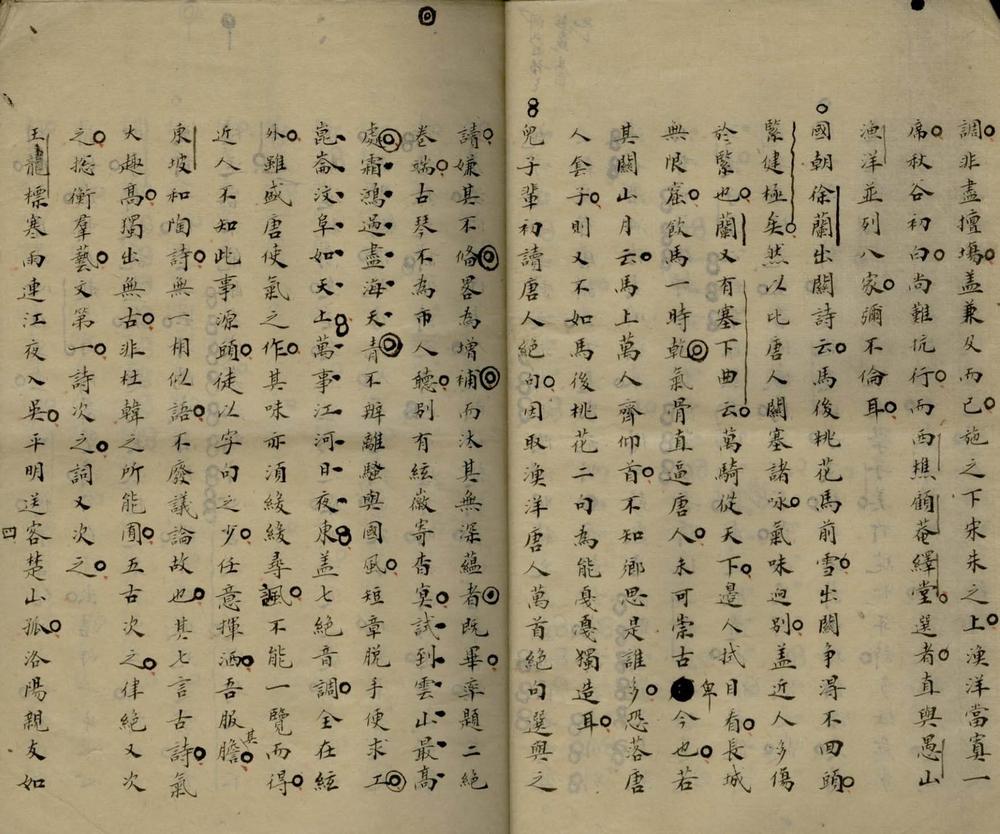 調非盡擅塲盖兼及而已施之下宋朱之上漁洋當寘一
席秋谷初白尚難抗行而西樵顧菴繹堂選者直與愚山
漁洋並列八家彌不倫耳
國朝徐蘭出關詩云馬後桃花馬前雪出關争得不回頭
緊健極矣然以比唐人關塞諸咏氣味迥别盖近人多傷
於緊也蘭又有塞下曲云萬騎從天下邉人拭目看長城
無限窟飲馬一時乾氣骨直逼唐人未可崇古卑今也若
其關山月云馬上萬人齊仰首不知鄉思是誰多恐落唐
人套子則又不如馬後桃花二句為能戞戞獨造耳
兒子輩初讀唐人絕句因取漁洋唐人萬首絕句選與之
請嫌其不俻畧為增補而汰其無深藴者既畢率題二絕
卷端古琴不為市人聽别有絃徽寄杳冥試到雲山最高
處霜鴻過盡海天青不辨離騷與國風短章脱手便求工
崑崙汶阜如天上萬事江河日夜東盖七絕音調全在絃
外雖盛唐使氣之作其味亦須緩緩尋諷不能一覽而得
近人不知此事源頭徒以字句之少任意揮洒吾服膽其
東坡和陶詩無一相似語不廢議論故也其七言古詩氣
大趣髙獨出無古非杜韓之所能囿五古次之律絕又次
之揔衡羣藝文第一詩次之詞又次之
王龍標寒雨連江夜入吳平明送客楚山孤洛陽親友如
四